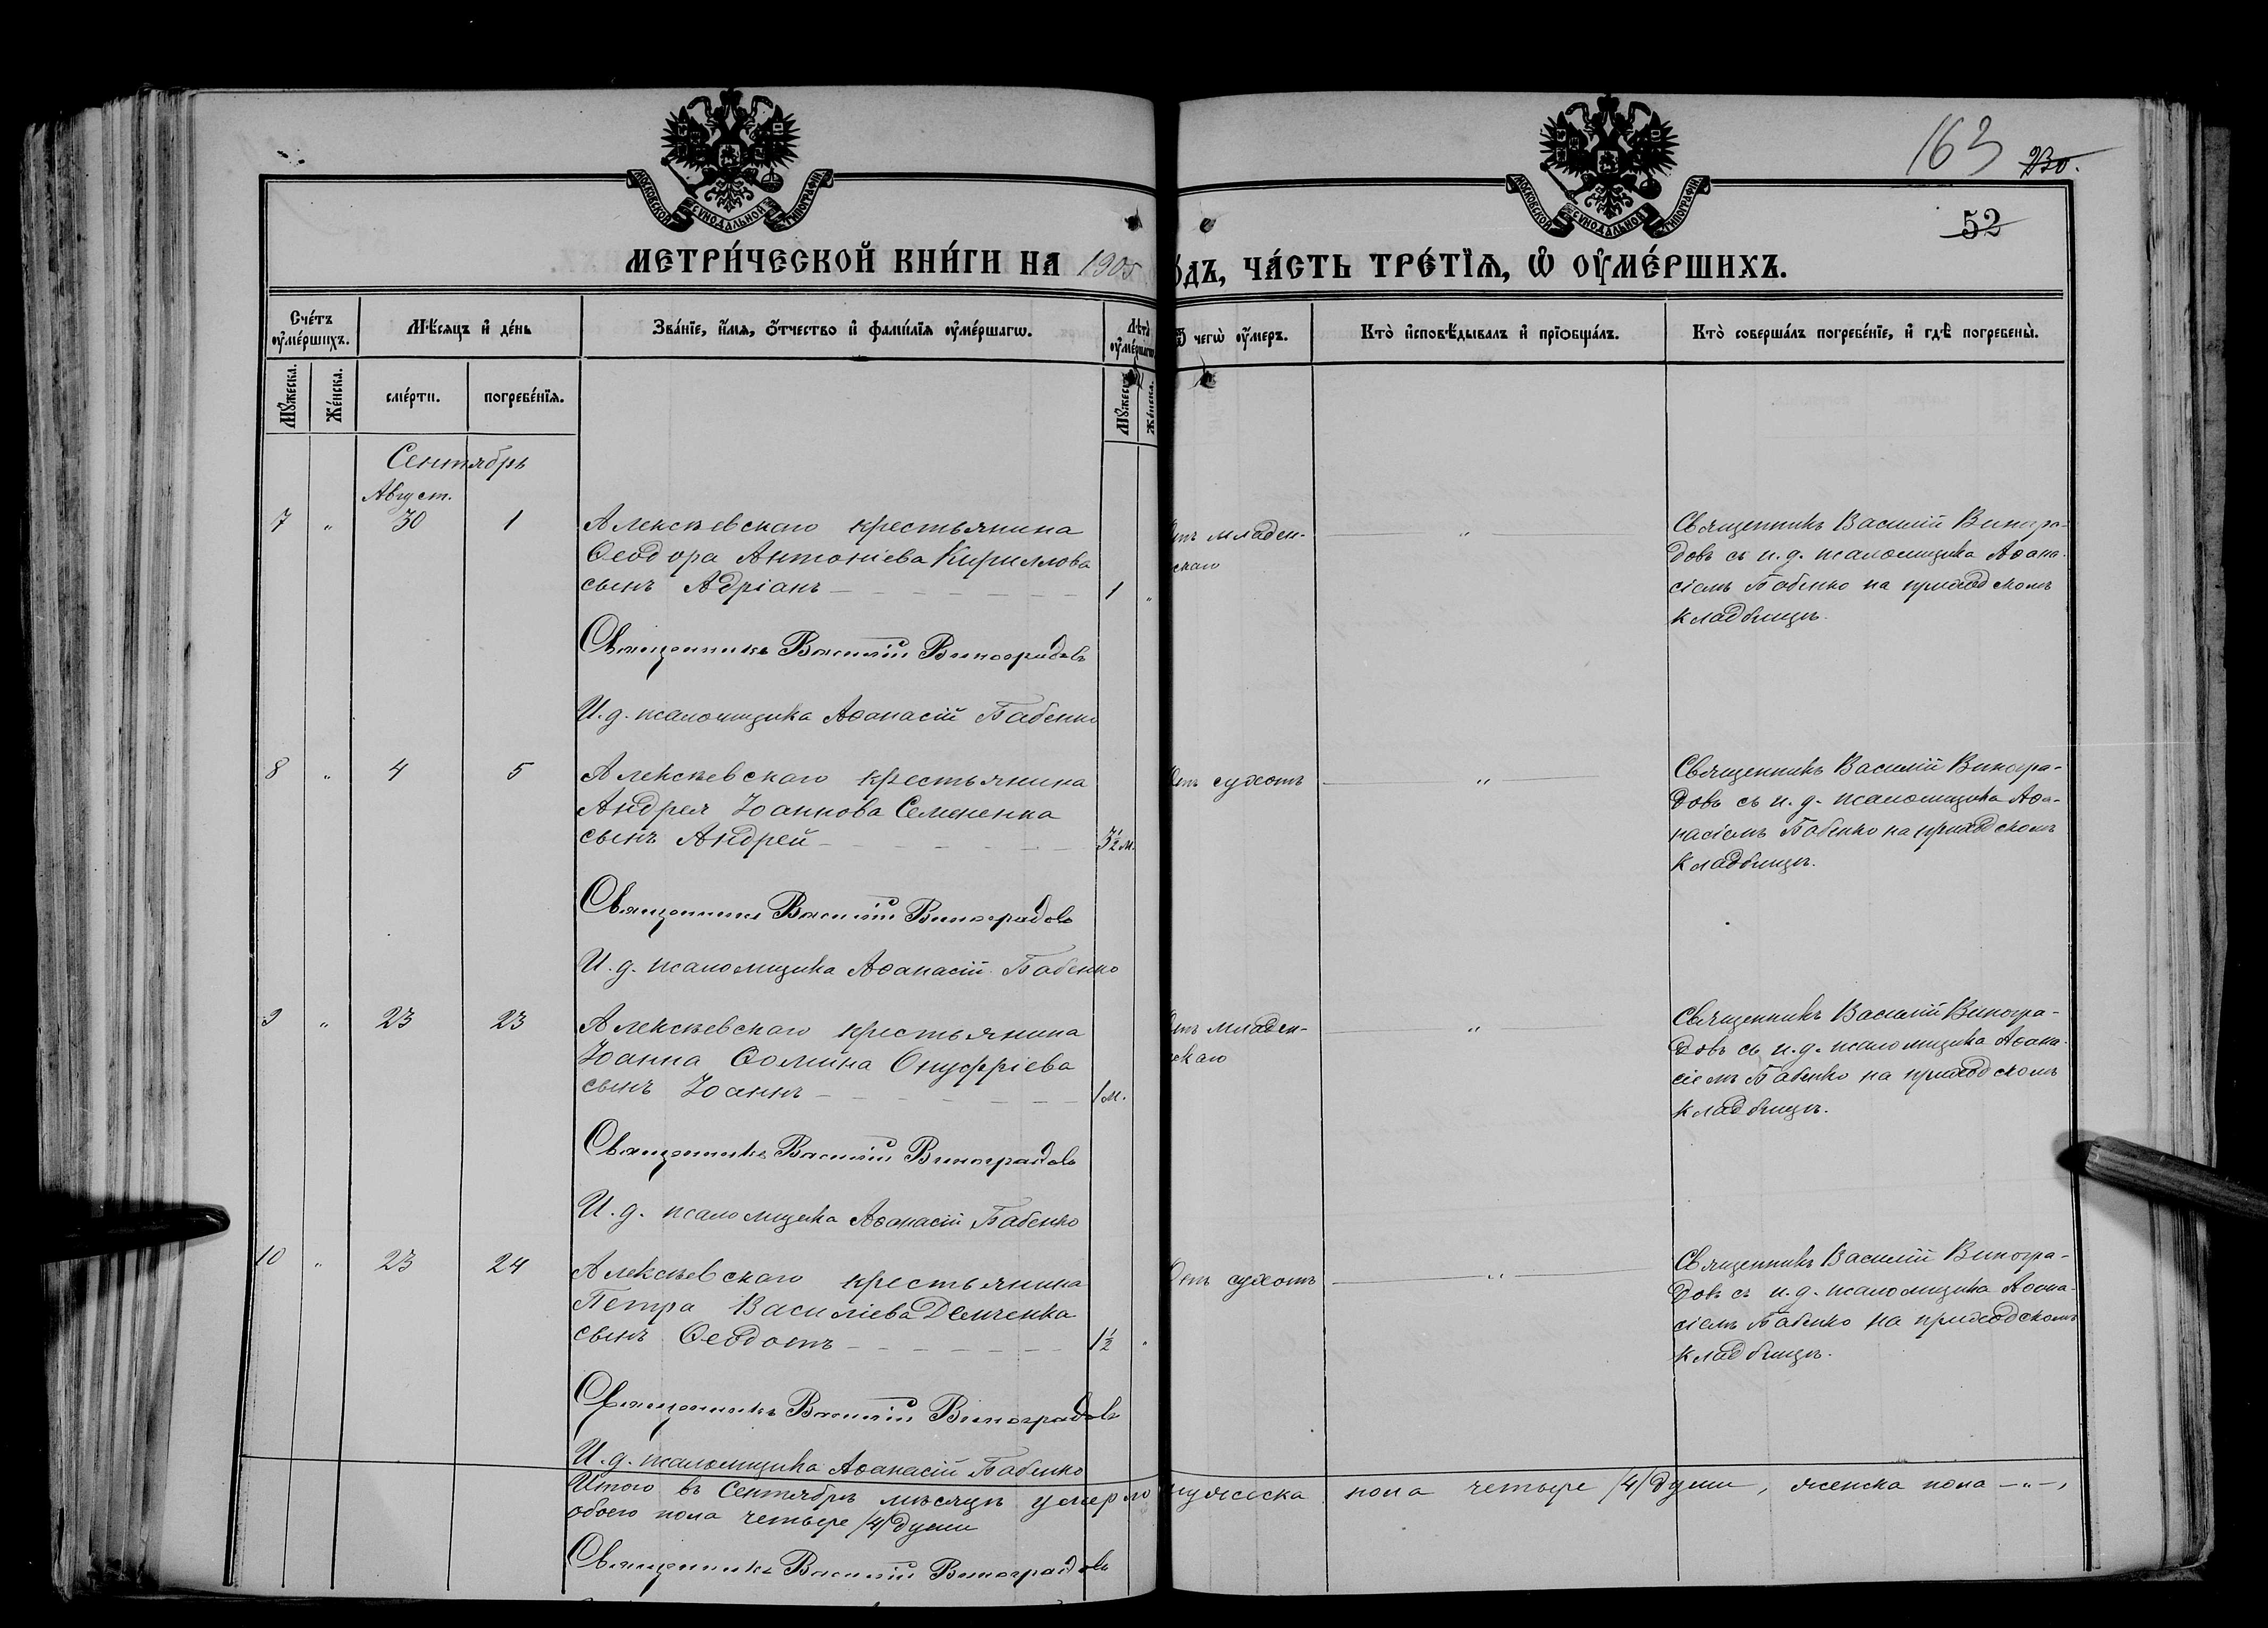 163 230.
52
МОСКОВСКОЙ СУНОДАЛЬНОЙ ТИПОГРАФІИ
МОСКОВСКОЙ СУНОДАЛЬНОЙ ТИПОГРАФІИ
МЕТРИ́ЧЕСКОЙ КНИ́ГИ НА 1905
ОДЪ, ЧА́СТЬ ТРЕ́ТЇѦ, Ѡ ОУ҆МЕ́РШИХЪ.
Сче́тъ оу҆ме́ршихъ.
Мѣ́сѧцъ и҆ де́нь
Зва́нїе, и҆́мѧ, ѻ҆́тчество и҆ фами́лїѧ оу҆ме́ршагѡ.
Лѣ́та оу҆ме́ршагѡ
Ѿ чегѡ̀ оу҆́меръ.
Кто̀ и҆сповѣ́дывалъ и҆ прїѻбща́лъ.
Кто̀ соверша́лъ погребе́нїе, и҆ гдѣ̀ погребены̀.
Мꙋ́жеска. Же́нска. сме́рти. погребе́нїѧ. Мꙋ́жеска. Же́нска.
Сентябрь
Август.
7 " 30 1 Алексѣевскаго крестьянина
Ѳеодора Антоніева Кириллова
сынъ Адріанъ — 1 "
отъ младен-
скаго
"
Священникъ Василій Виногра-
довъ съ и. д. псаломщика Аѳана-
сіемъ Бабенко на приходскомъ
кладбищѣ.
Священникъ Василій Виноградовъ
И. д. псаломщика Аѳанасій Бабенко
8 " 4 5 Алексѣевскаго крестьянина
Андрея Іоаннова Семененка
сынъ Андрей — 3½ м.
Отъ сухотъ
"
Священникъ Василій Виногра-
довъ съ и. д. псаломщика Аѳа-
насіемъ Бабенко на приходскомъ
кладбищѣ.
Священникъ Василій Виноградовъ
И. д. псаломщика Аѳанасій Бабенко
9 " 23 23 Алексѣевскаго крестьянина
Іоанна Ѳомина Онуфріева
сынъ Іоаннъ — 1 м.
Отъ младен-
скаго
"
Священникъ Василій Виногра-
довъ съ и. д. псаломщика Аѳана-
сіемъ Бабенко на приходскомъ
кладбищѣ.
Священникъ Василій Виноградовъ
И. д. псаломщика Аѳанасій Бабенко
10 " 23 24 Алексѣевскаго крестьянина
Петра Василіева Демченка
сынъ Ѳеодотъ — 1½ "
Отъ сухотъ
"
Священникъ Василій Виногра-
довъ съ и. д. псаломщика Аѳана-
сіемъ Бабенко на приходскомъ
кладбищѣ.
Священникъ Василій Виноградовъ
И. д. псаломщика Аѳанасій Бабенко
Итого въ Сентябрѣ мѣсяцѣ умерло мужеска пола четыре /4/ души, женска пола — " —,
обоего пола четыре /4/ души
Священникъ Василій Виноградовъ